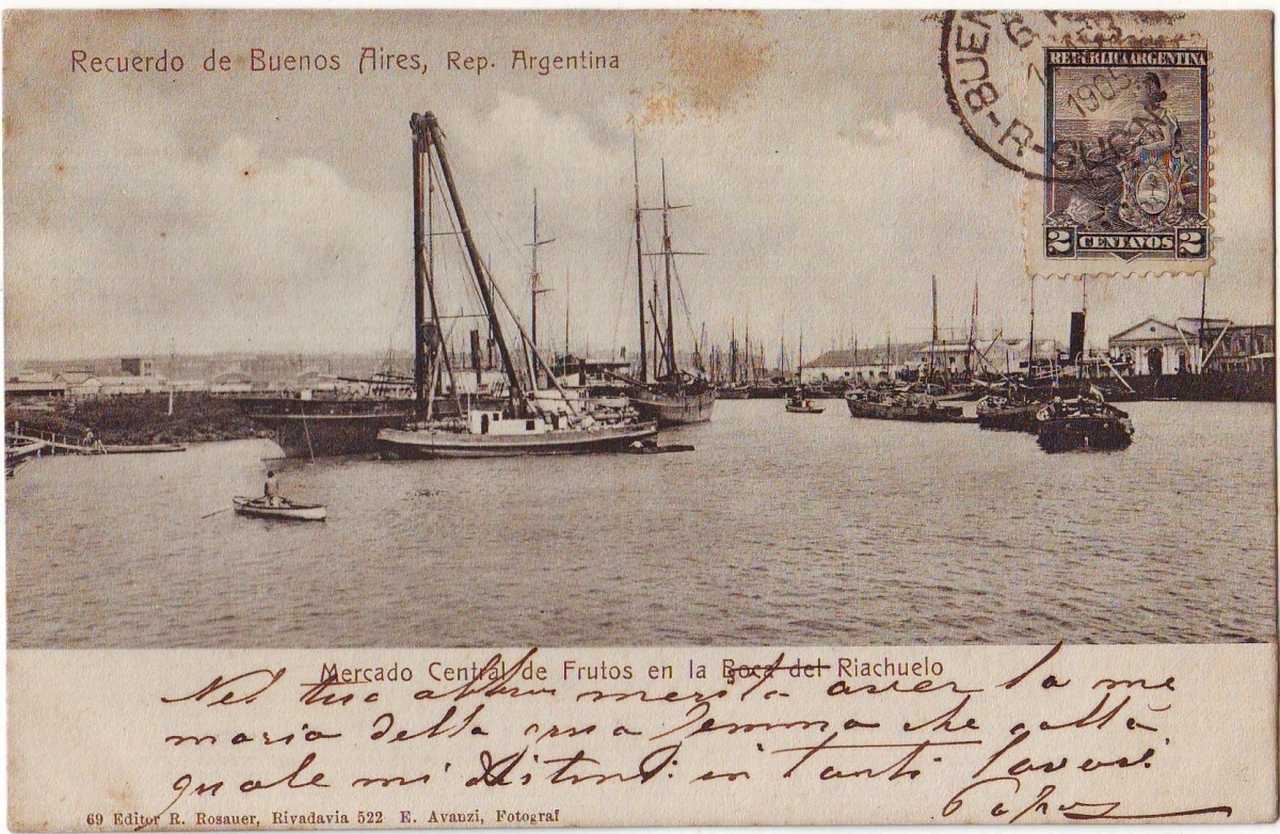 Recuerdo de Buenos Aires, Rep. Argentina
BUEN
6
1905
REPÚBLICA ARGENTINA
2 CENTAVOS 2
Mercado Central de Frutos en la Boca del Riachuelo
Nel tuo merita aver la me
moria della Gemma che
quale mi in tanti lavori
69 Editor R. Rosauer, Rivadavia 522 E. Avanzi, Fotograf